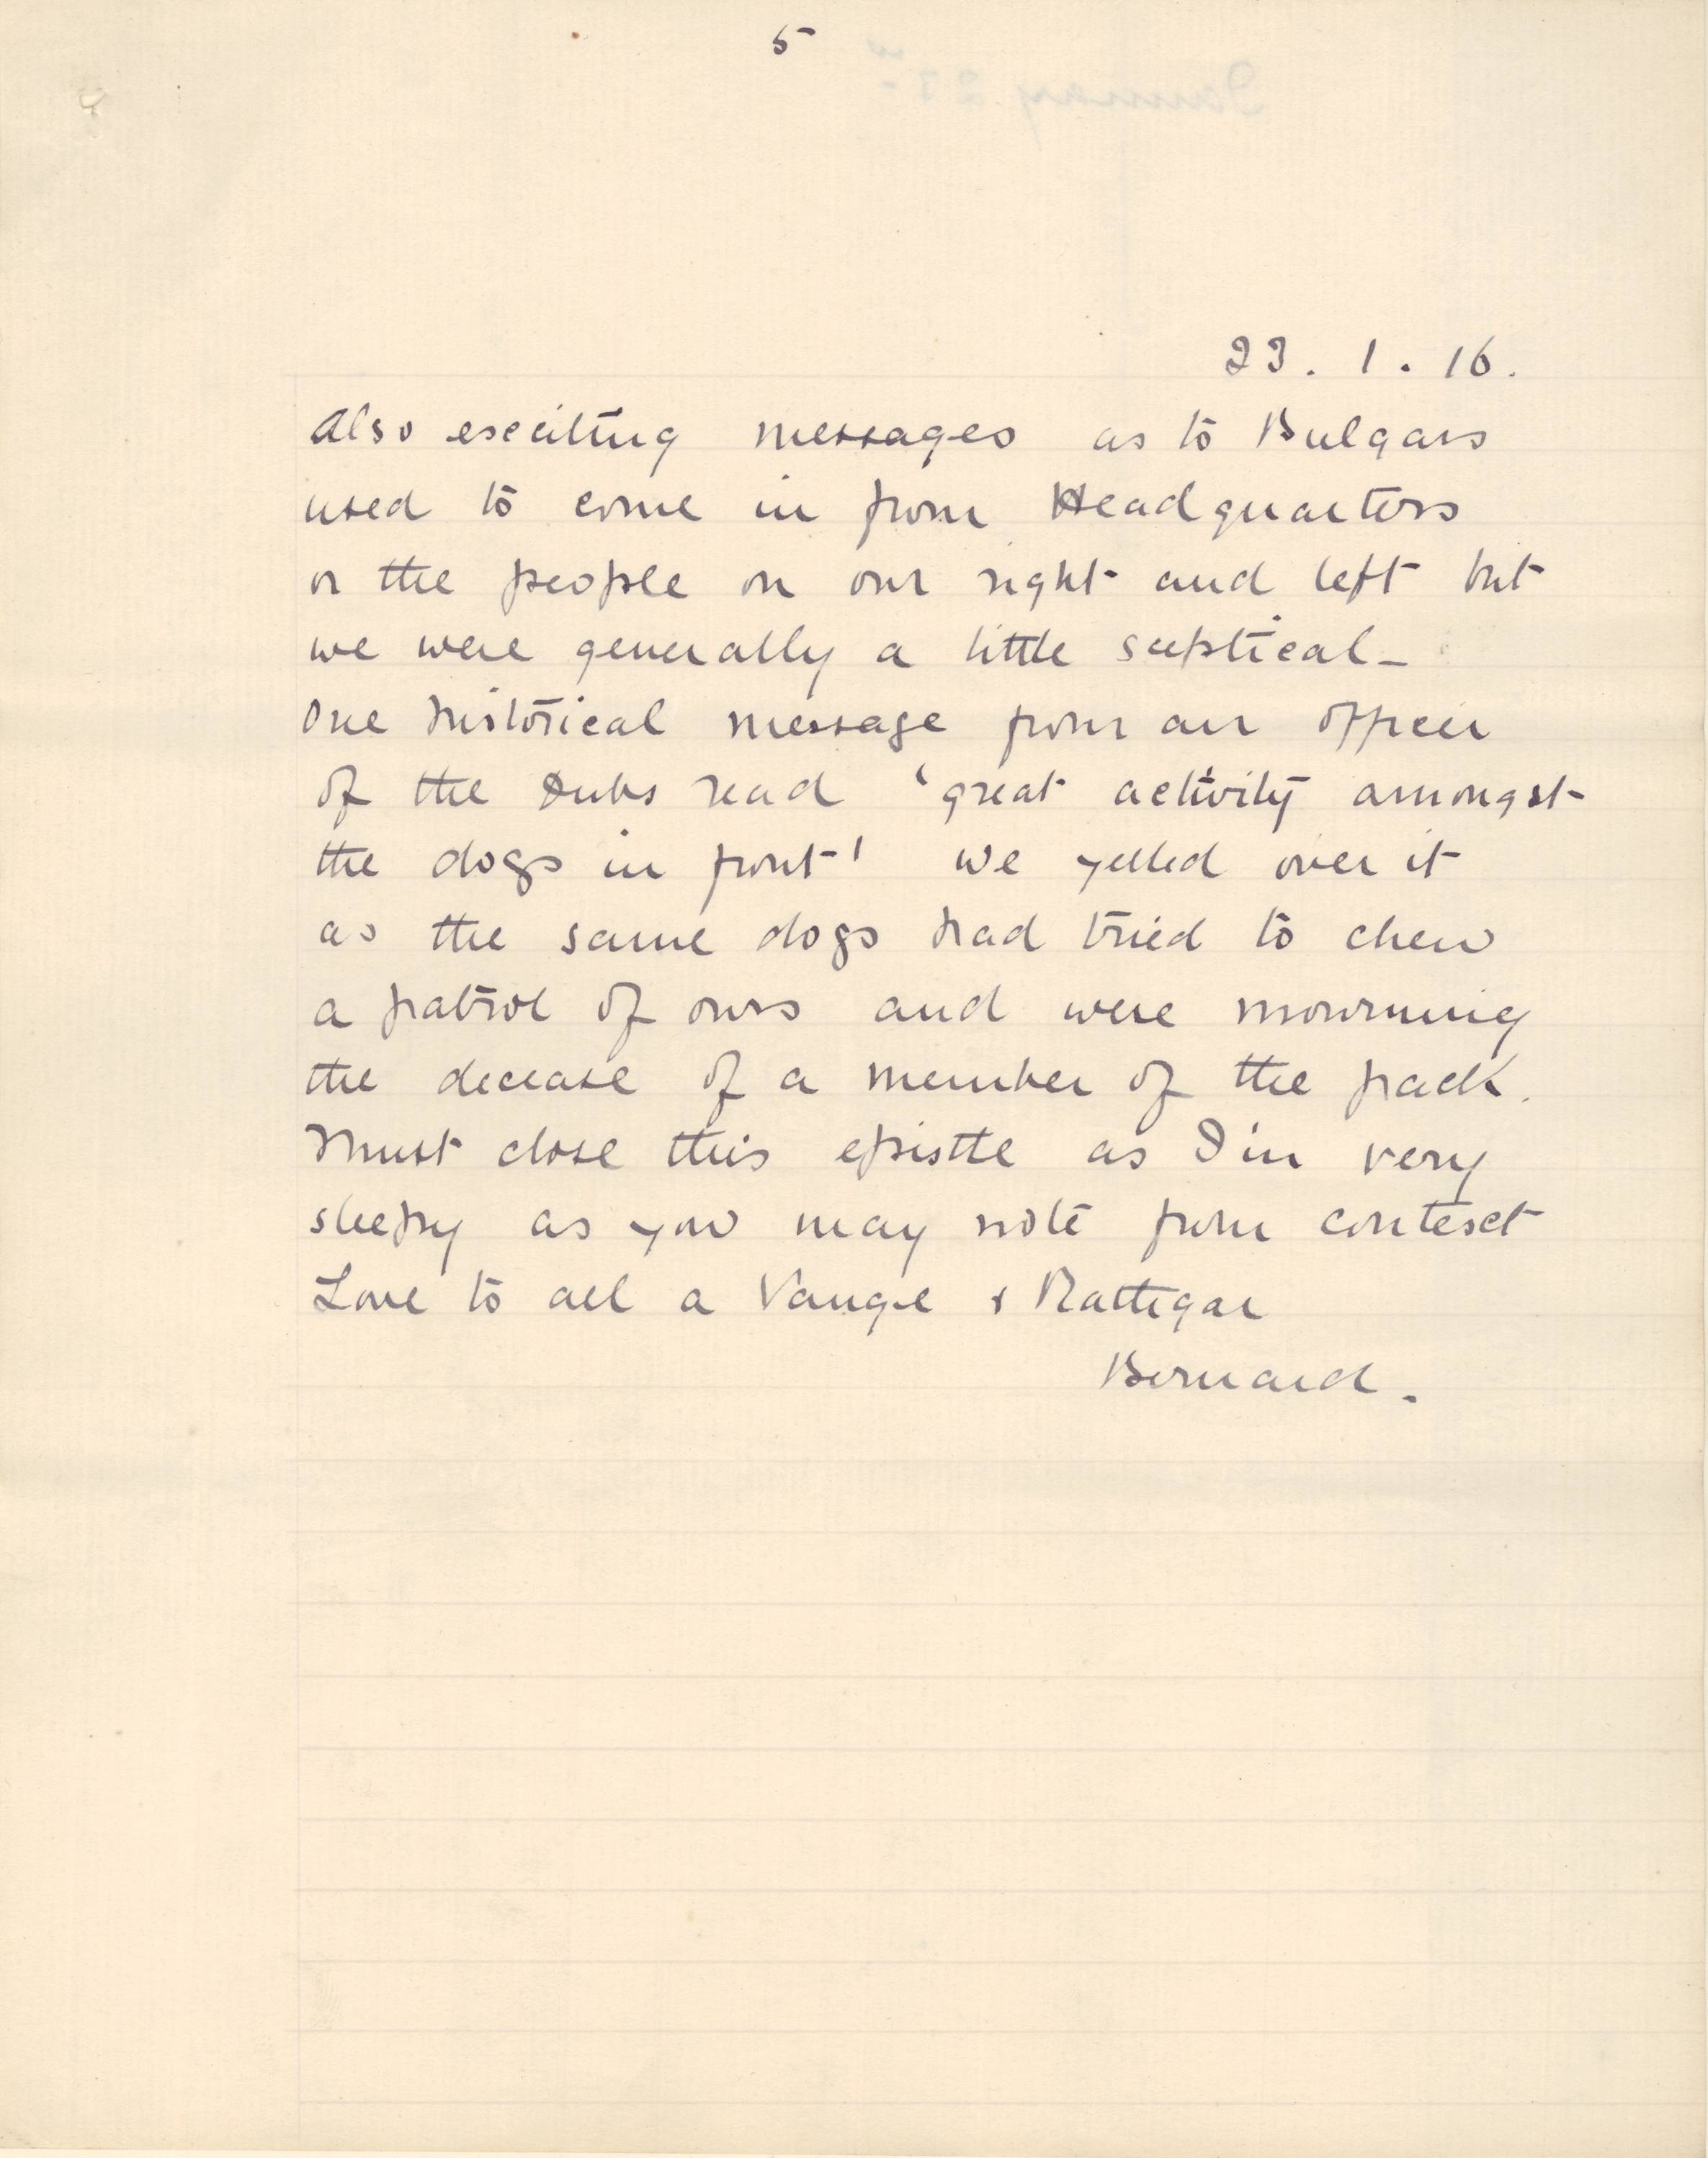 5
23. 1. 16.
Also exciting messages as to Bulgars
used to come in from Headquarters
or the people on our right and left but
we were generally a little sceptical_
One historical message from an officer
of the Dubs read 'great activity amongst
the dogs in front' we yelled over it
as the same dogs had tried to chew
a patrol of ours and were mourning
the decease of a member of the pack.
Must close this epistle as I'm very
sleepy as you may note from context
Love to all a Vangie & Rattigar
Bernard.